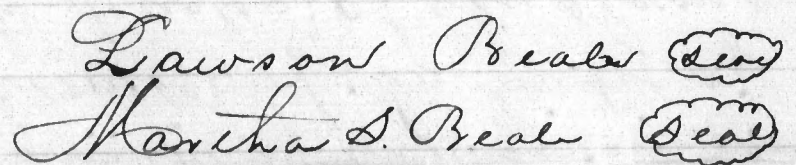 Lawson Beale seal
Martha S. Beale seal